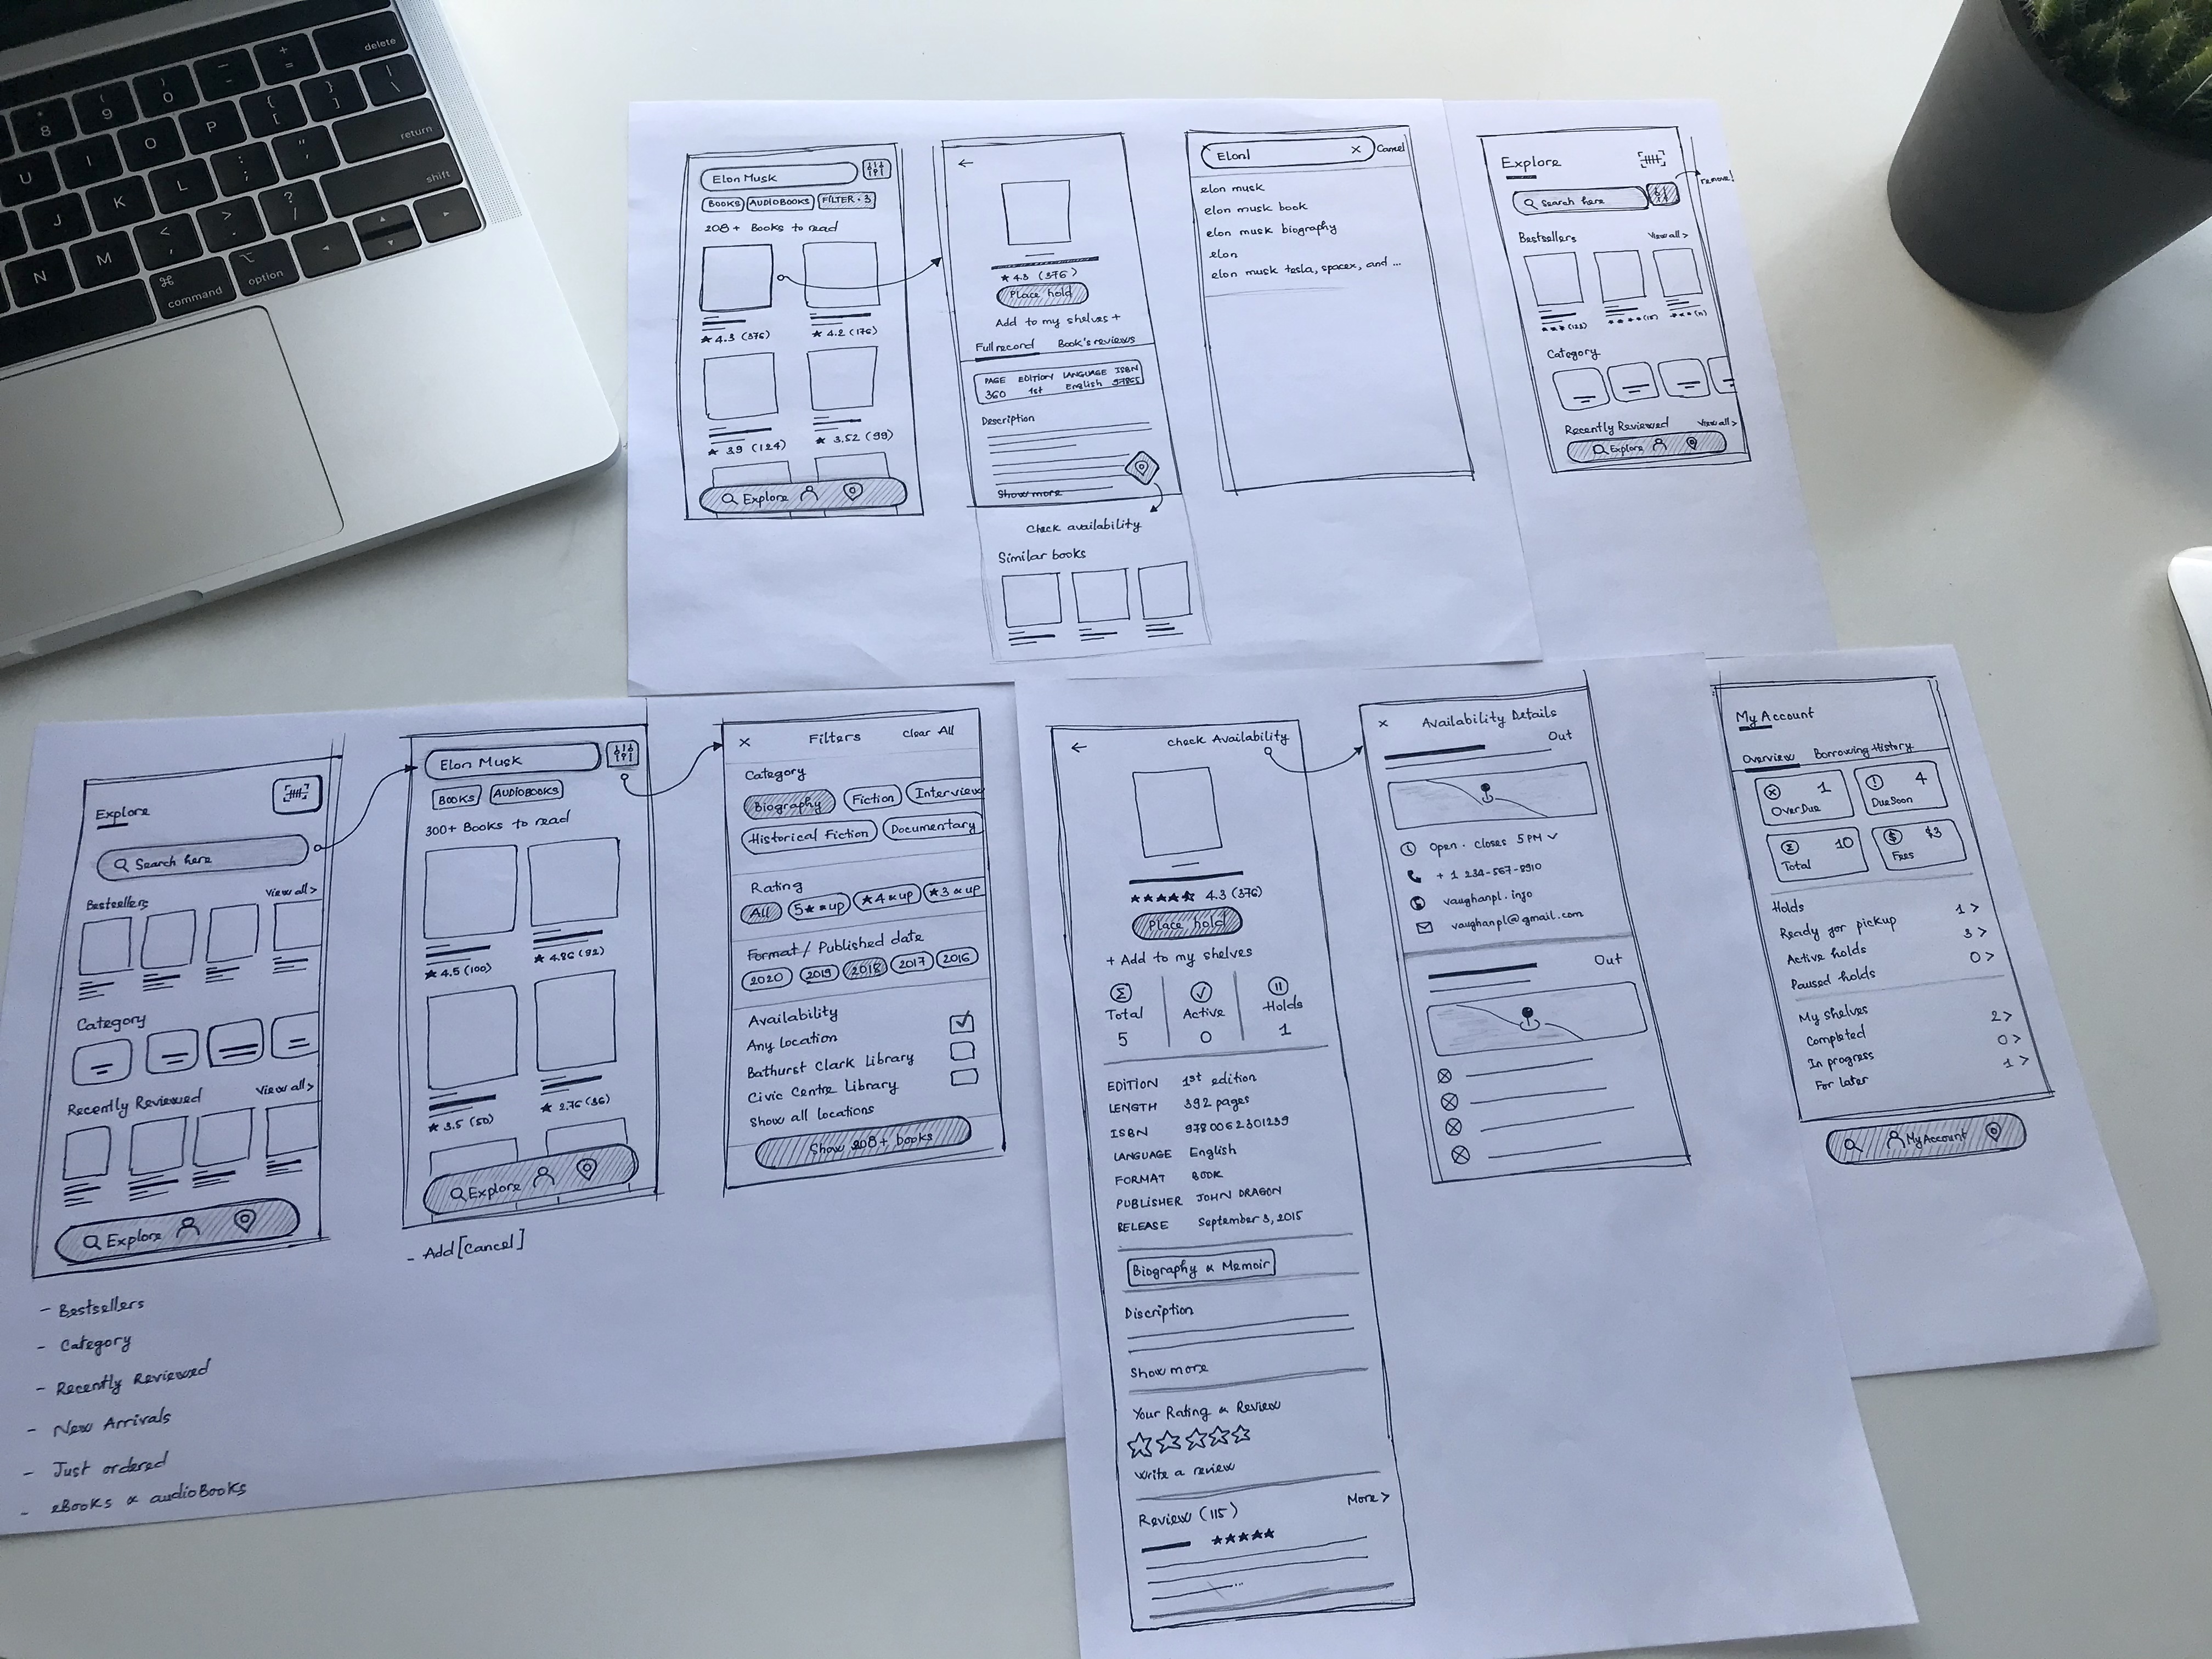 delete
return
shift
command
option
+
=
8
9
0
U
I
O
P
J
K
L
N
M
Elon Musk
BOOKS AUDIOBOOKS FILTER · 3
208+ Books to read
★ 4.3 (376) ★ 4.2 (176)
★ 3.9 (124) ★ 3.52 (99)
Explore
←
★ 4.3 (376)
Place hold
Add to my shelves +
Full record Book's reviews
PAGE EDITION LANGUAGE ISBN
360 1st English 97865
Description
Show more
Check availability
Similar books
Elon| × Cancel
elon musk
elon musk book
elon musk biography
elon
elon musk tesla, spacex, and ...
Explore
Search here
remove!
Bestsellers View all >
★★★ (123) ★★★★ (15) ★★★ (11)
Category
Recently Reviewed View all >
Explore
Explore
Search here
Bestsellers View all >
Category
Recently Reviewed View all >
Explore
- Bestsellers
- Category
- Recently Reviewed
- New Arrivals
- Just ordered
- eBooks & audioBooks
Elon Musk
BOOKS AUDIOBOOKS
300+ Books to read
★ 4.5 (100) ★ 4.86 (92)
★ 3.5 (50) ★ 2.76 (36)
Explore
- Add [Cancel]
× Filters Clear All
Category
Biography Fiction Interview
Historical Fiction Documentary
Rating
All 5★ & up ★4 & up ★3 & up
Format / Published date
2020 2019 2018 2017 2016
Availability
Any location
Bathurst Clark Library
Civic Centre Library
Show all locations
Show 208+ books
← Check Availability
★★★★★ 4.3 (376)
Place hold
+ Add to my shelves
Total Active Holds
5 0 1
EDITION 1st edition
LENGTH 392 pages
ISBN 9780062301239
LANGUAGE English
FORMAT BOOK
PUBLISHER JOHN DRAGON
RELEASE September 3, 2015
Biography & Memoir
Discription
Show more
Your Rating & Review
Write a review
Review (115) More >
★★★★★
× Availability Details
Out
Open · Closes 5 PM
+ 1 234-567-8910
vaughanpl.info
vaughanpl@gmail.com
Out
My Account
Overview Borrowing History
1 OverDue
4 Due Soon
10 Total
$3 Fees
Holds
Ready for pickup 1 >
Active holds 3 >
Paused holds 0 >
My shelves
Completed 2 >
In progress 0 >
For later 1 >
My Account